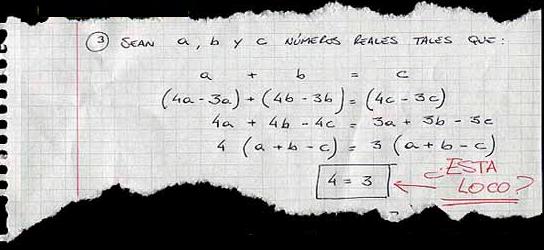 3 SEAN a, b y c NÚMEROS REALES TALES QUE:
a + b = c
(4a - 3a) + (4b - 3b) = (4c - 3c)
4a + 4b - 4c = 3a + 3b - 3c
4 (a + b - c) = 3 (a + b - c)
4 = 3
¿ESTA
LOCO?